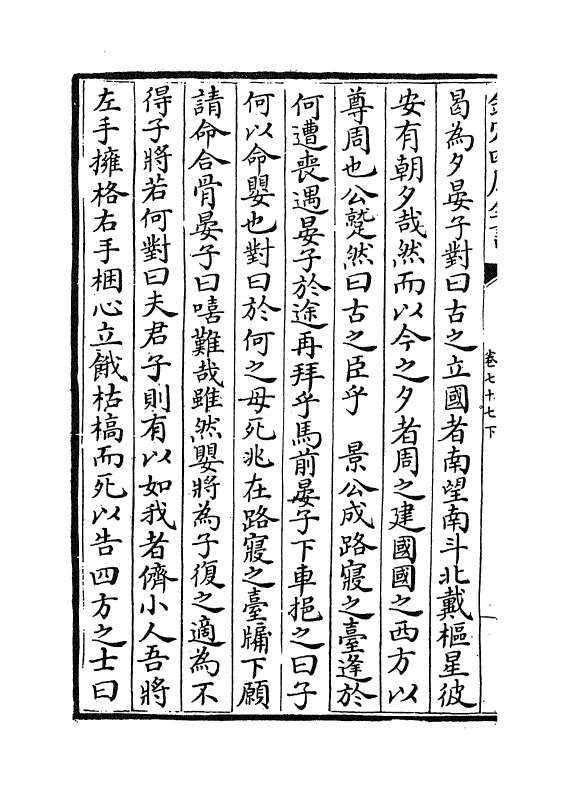 曷為夕晏子對曰古之立國者南望南斗北戴樞星彼
安有朝夕哉然而以今之夕者周之建國國之西方以
尊周也公蹵然曰古之臣乎　景公成路寢之臺逢於
何遭喪遇晏子於途再拜乎馬前晏子下車挹之曰子
何以命嬰也對曰於何之母死兆在路寢之臺牖下願
請命合骨晏子曰嘻難哉雖然嬰將為子復之適為不
得子將若何對曰夫君子則有以如我者儕小人吾將
左手擁格右手梱心立餓枯槁而死以告四方之士曰
卷七十七下